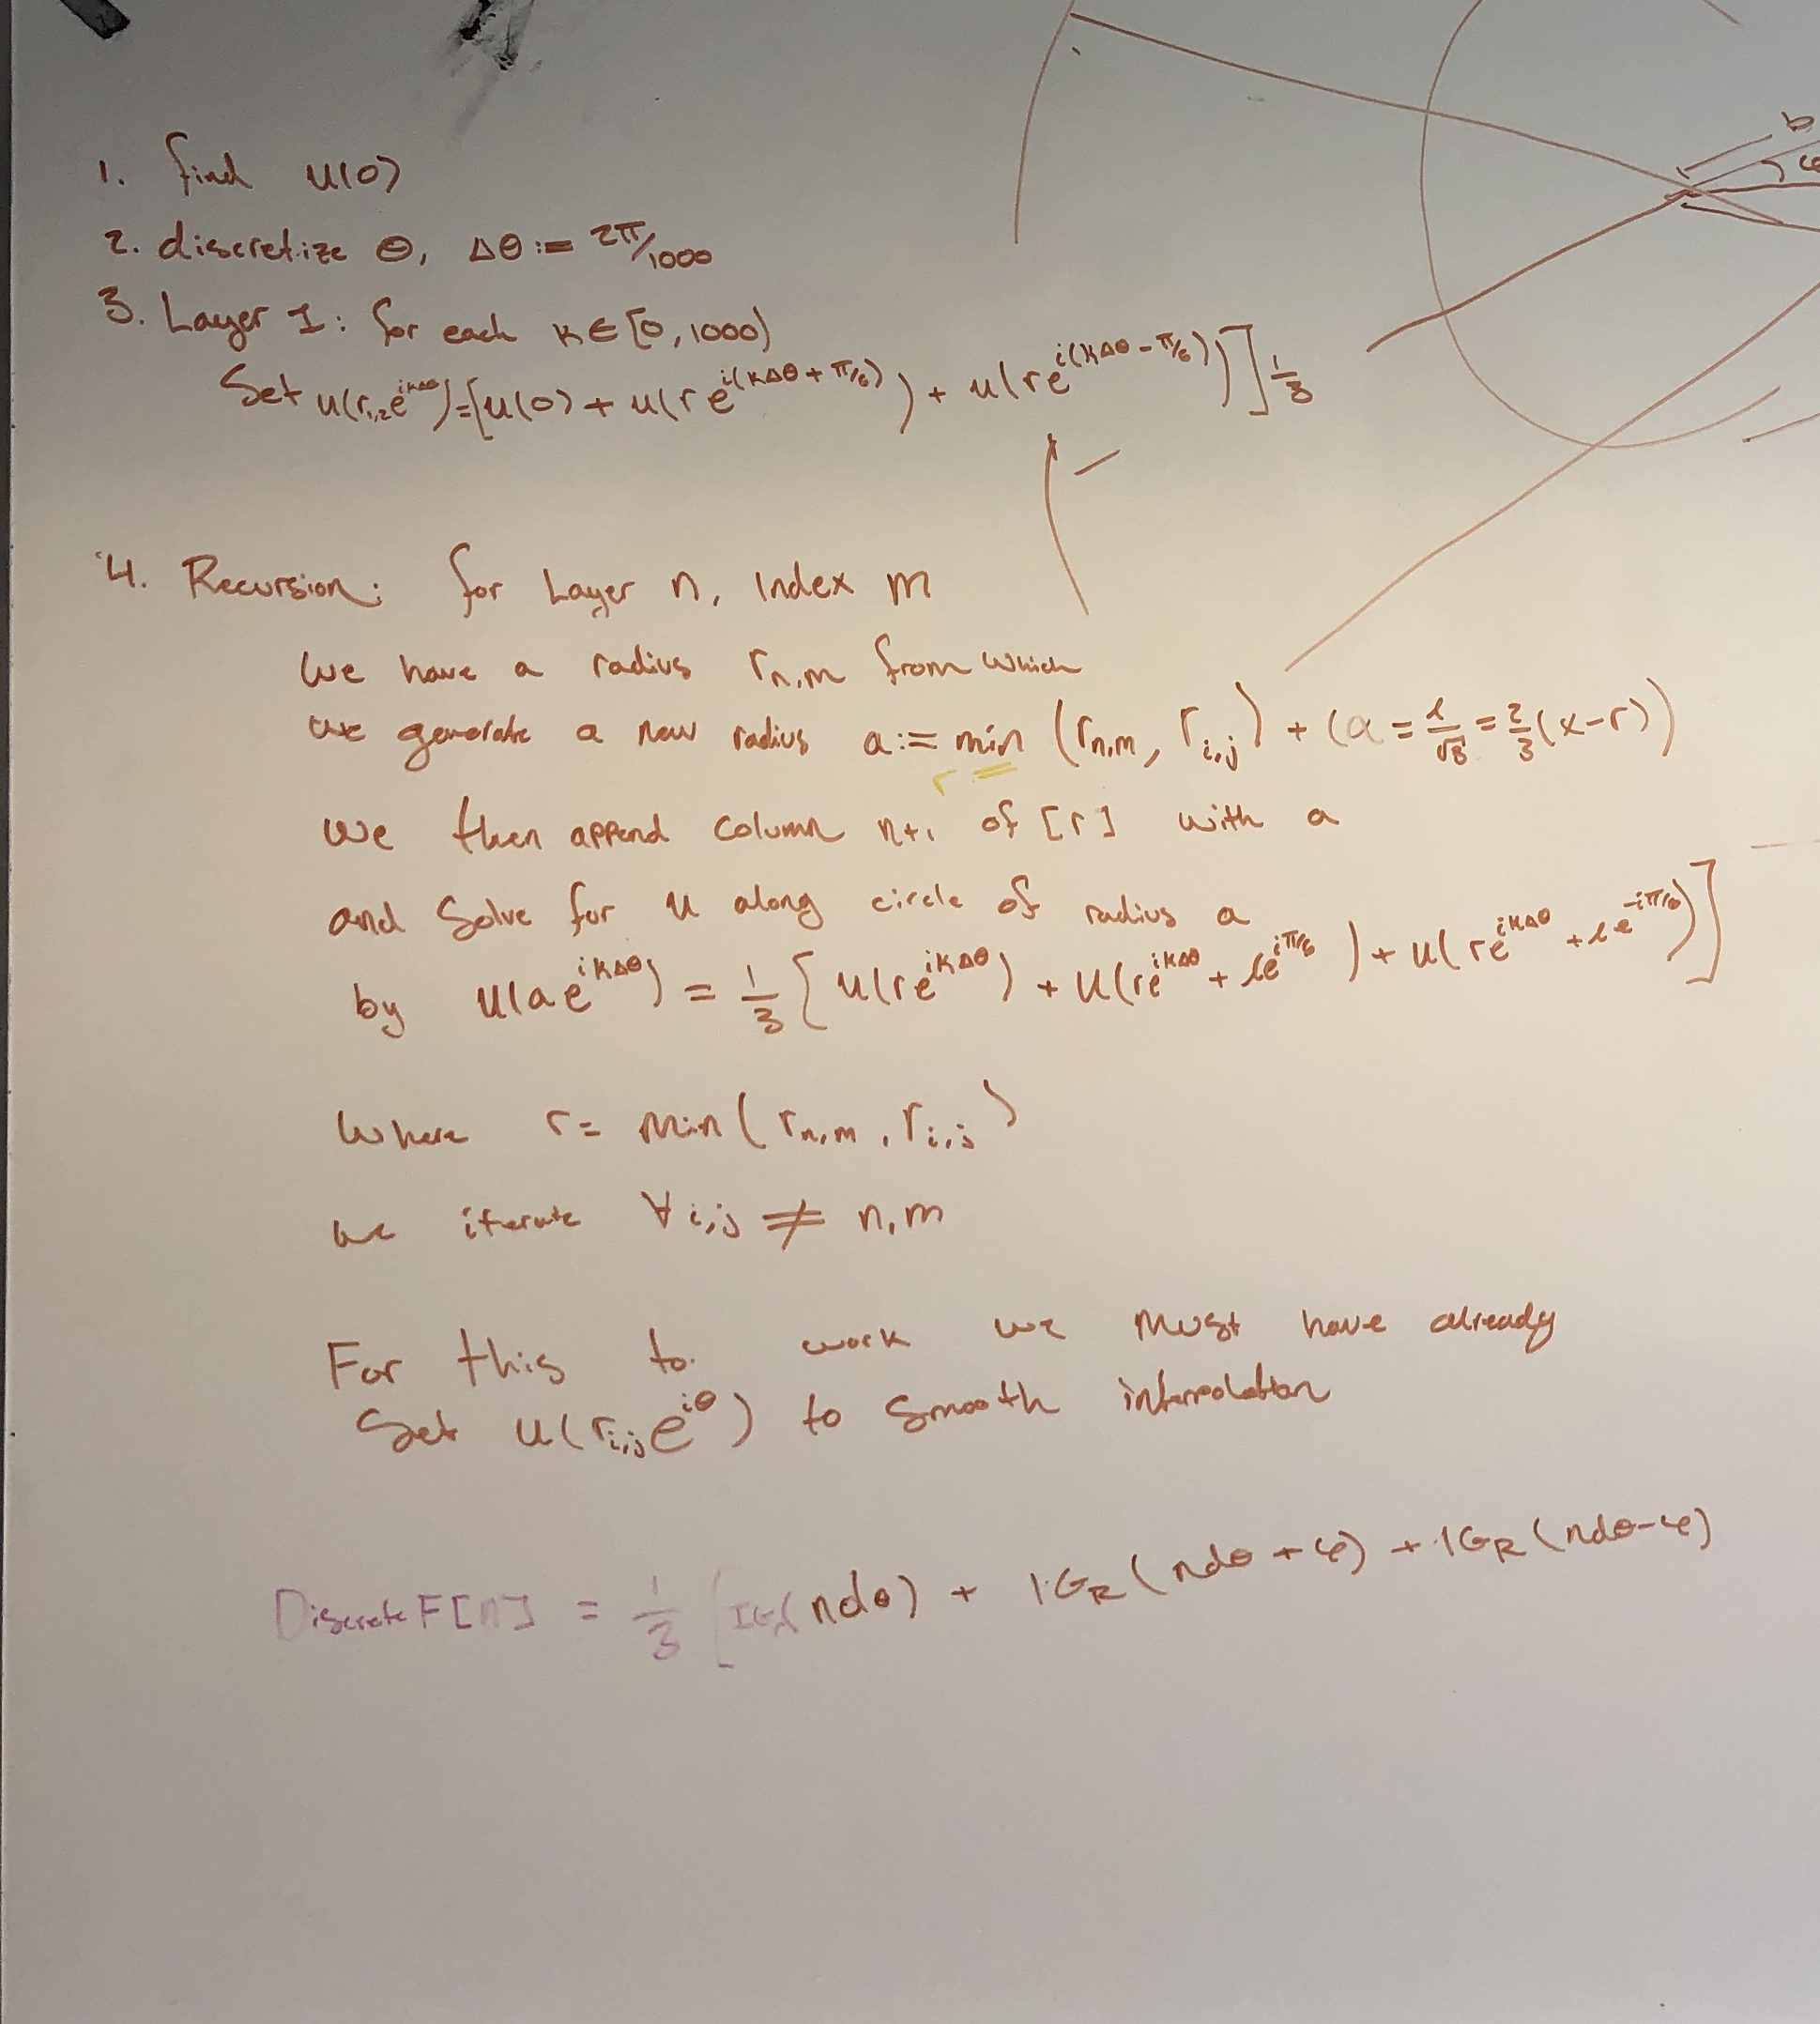 b
φ
1. find u(0)
2. discretize θ, Δθ := 2π/1000
3. Layer 1: for each k ∈ [0, 1000)
Set u(r₁,₂e^{ikΔθ}) = [u(0) + u(re^{i(kΔθ + π/6)}) + u(re^{i(kΔθ - π/6)})] 1/3
4. Recursion: for Layer n, index m
we have a radius r_{n,m} from which
we generate a new radius a := min (r_{n,m}, r_{i,j}) + (α = ℓ/√3 = 2/3 (x-r))
r
we then append column n+1 of [r] with a
and solve for u along circle of radius a
by u(ae^{ikΔθ}) = 1/3 [u(re^{ikΔθ}) + u(re^{ikΔθ} + ℓe^{iπ/6}) + u(re^{ikΔθ} + ℓe^{-iπ/6})]
where r = min(r_{n,m}, r_{i,j})
we iterate ∀ i,j ≠ n,m
For this to work we must have already
Set u(r_{i,j}e^{iθ}) to smooth interpolation
Discrete F[n] = 1/3 [IG( ndθ) + IG_R(ndθ + φ) + IG_R(ndθ-φ)